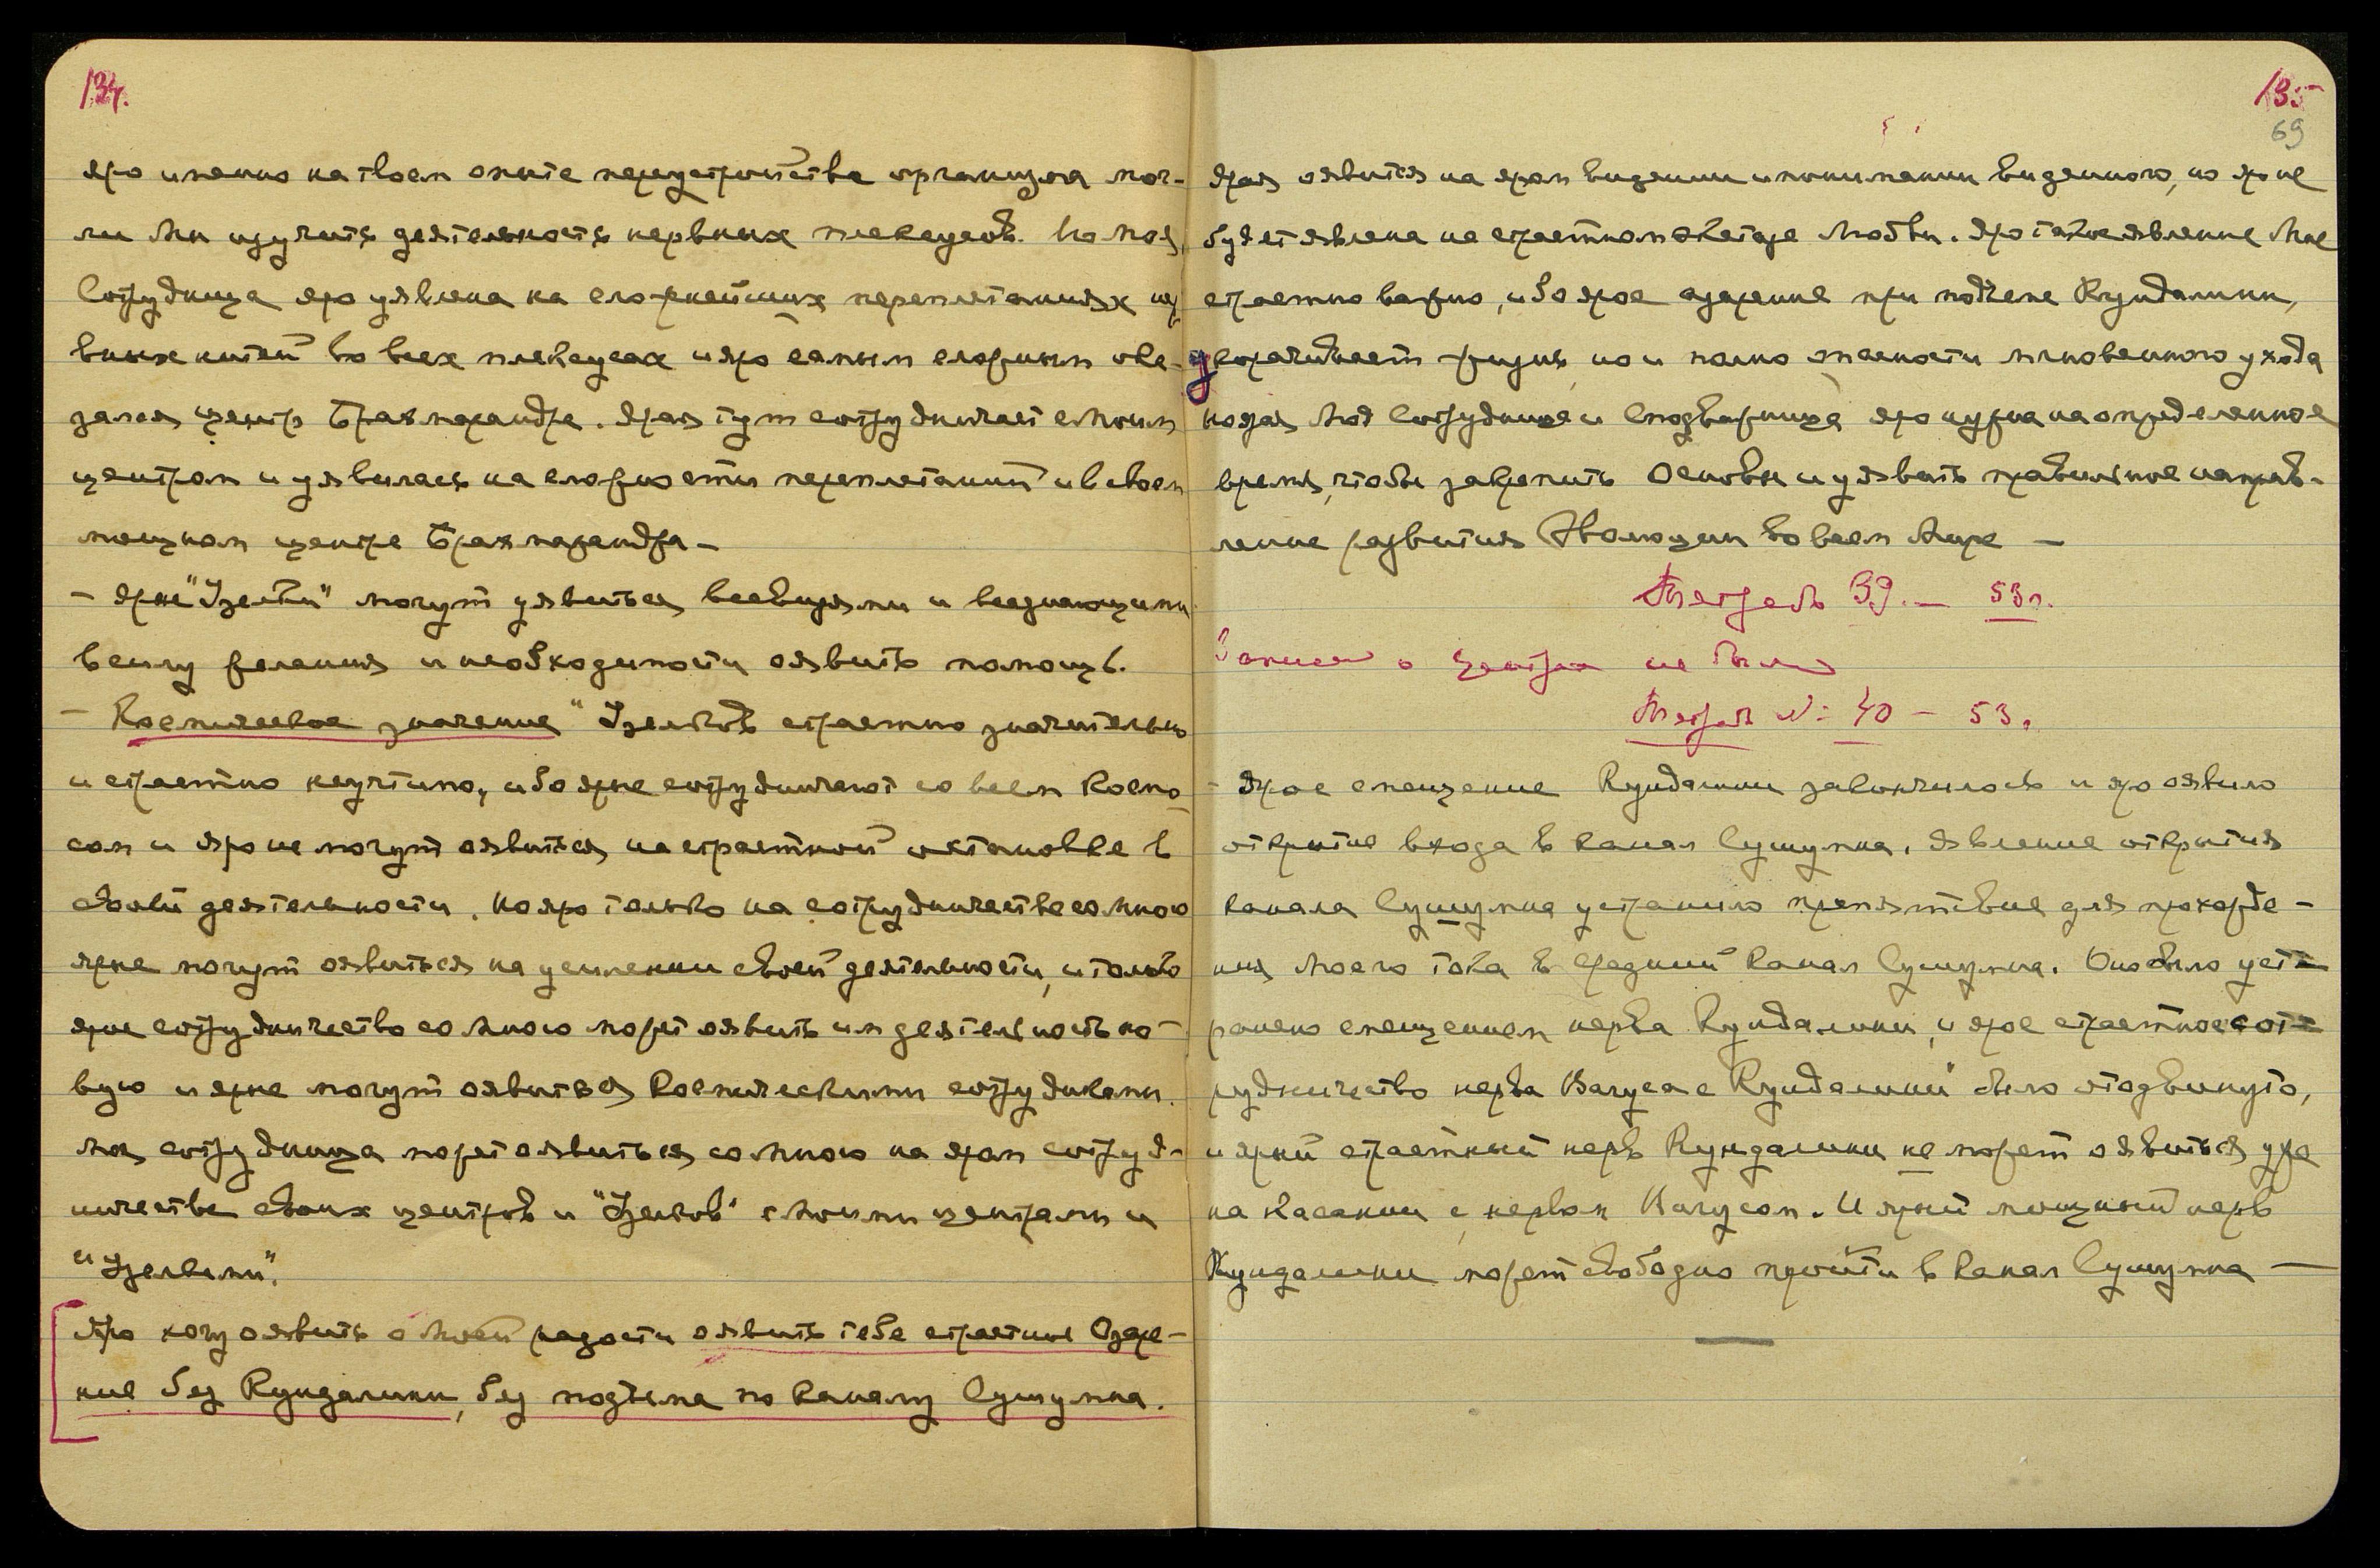 134.
яро именно на твоем опыте переустройства организма мог-
ли Мы изучить деятельность нервных плексусов. Но моя
Сотрудница яро уявлена на сложнейших переплетаниях нер
вных нитей во всех плексусах и яро самым сложным ока-
зался центр Брахмарандра. Ярая тут сотрудничает с Моим
центром и уявилась на сложности переплетаний и в своем
мощном центре Брахмарандра –
– Ярые "Узелки" могут уявиться всевидящими и всезнающими
в силу желания и необходимости оявить помощь.
– Космическое значение "Узелков страстно значительно
и страстно неучтимо, ибо ярые сотрудничают со всем Космо
сом и яро не могут оявиться на страстной остановке в
своей деятельности. Но яро только на сотрудничестве со Мною
ярые могут оявиться на усилении своей деятельности, и только
ярое сотрудничество со Мною может оявить им деятельность но-
вую и ярые могут оявиться Космическими сотрудниками.
Моя сотрудница может оявиться со Мною на яром сотруд-
ничестве своих центров и "Узелков" с Моими центрами и
"Узелками".
Яро хочу оявить о Моей радости оявить тебе страстное Озаре-
ние без Кундалини, без подъема по каналу Сушумна.
135
69
Ярая оявится на яром видении и понимании виденного, но яро не
будет явлена на страстном экстазе Любви. Яро такое явление Мне
страстно важно, ибо ярое озарение при подъеме Кундалини,
укорачивает жизнь, но и полно опасности мгновенного ухода
но ярая Моя Сотрудница и Сподвижница яро нужна на определенное
время, чтобы закрепить Основы и уявить правильное направ-
ление развития Эволюции во всем Мире –
Тетрадь 39. – 53 г.
Записей о центрах не было
Тетрадь № 40 – 53.
– Ярое смещение Кундалини закончилось и яро оявило
открытие входа в канал Сушумна. Явление открытия
канала Сушумна устранило препятствие для прохожде-
ния Моего тока в средний канал Сушумна. Оно было уст-
ранено смещением нерва Кундалини, и ярое страстное сот-
рудничество нерва Вагуса с Кундалини было отодвинуто,
и ярый страстный нерв Кундалини не может оявиться уже
на касании с нервом Вагусом. И ярый мощный нерв
Кундалини может свободно пройти в канал Сушумна –